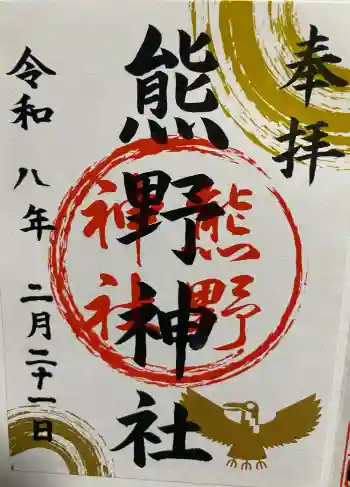 奉拝
熊野神社
熊野
神社
令和八年 二月二十一日